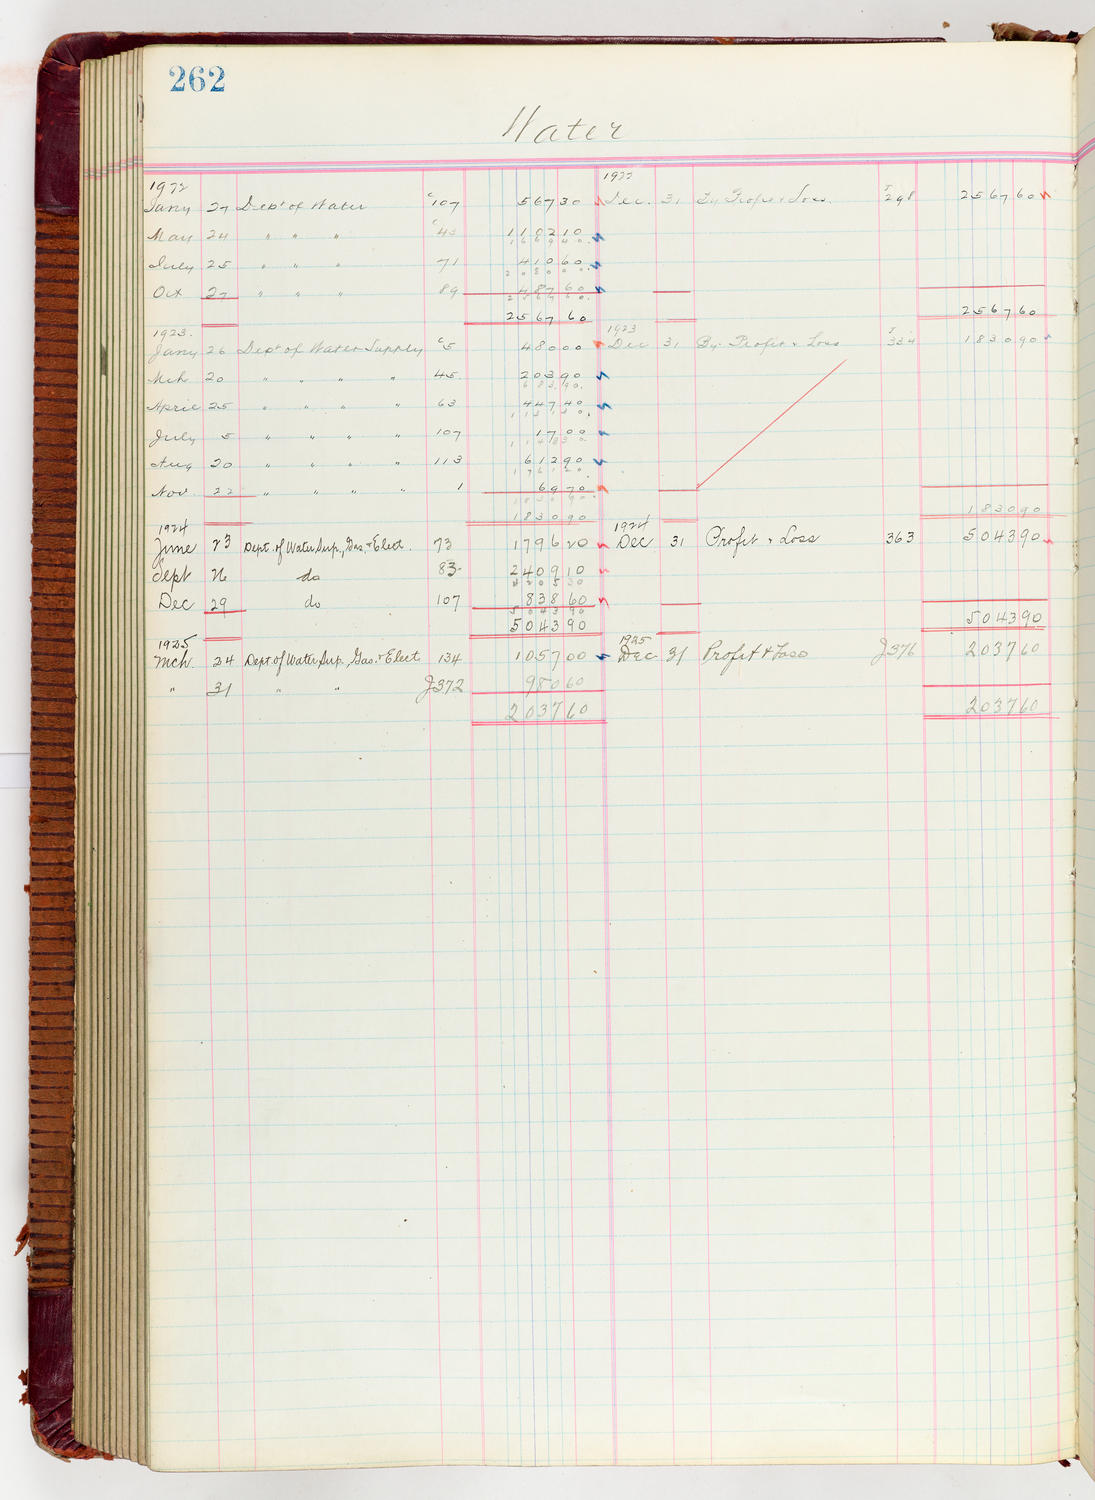 262
Water
1922 1922
Jany 27 Dept of Water C107 567 30 Dec. 31 By Profit & Loss J298 2567 60
May 24 " " " C45 1102 10
1669 40
July 25 " " " 71 410 60
2080 00
Oct 27 " " " 89 487 60
2567 60
2567 60 2567 60
1923. 1923
Jany 26 Dept of Water Supply C5 480 00 Dec 31 By Profit & Loss J334 1830 90
Mch 20 " " " " 45 203 90
683 90
April 25 " " " " 63 447 40
1131 30
July 5 " " " " 107 17 00
1148 30
Aug 20 " " " " 113 612 90
1761 20
Nov. 22 " " " " 1 69 70
1830 90
1830 90 1830 90
1924 1924
June 23 Dept. of Water Sup., Gas. & Elect. 73 1796 20 Dec 31 Profit & Loss 363 5043 90
Sept 26 do 83 2409 10
4205 30
Dec 29 do 107 838 60
5043 90
5043 90 5043 90
1925 1925
Mch. 24 Dept. of Water Sup., Gas. & Elect 134 1057 00 Dec 31 Profit & Loss J376 2037 60
" 31 " " J372 980 60
2037 60 2037 60